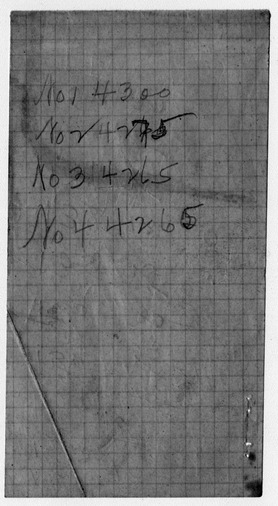 No 1 4300
No 2 4275
No 3 4265
No 4 4265